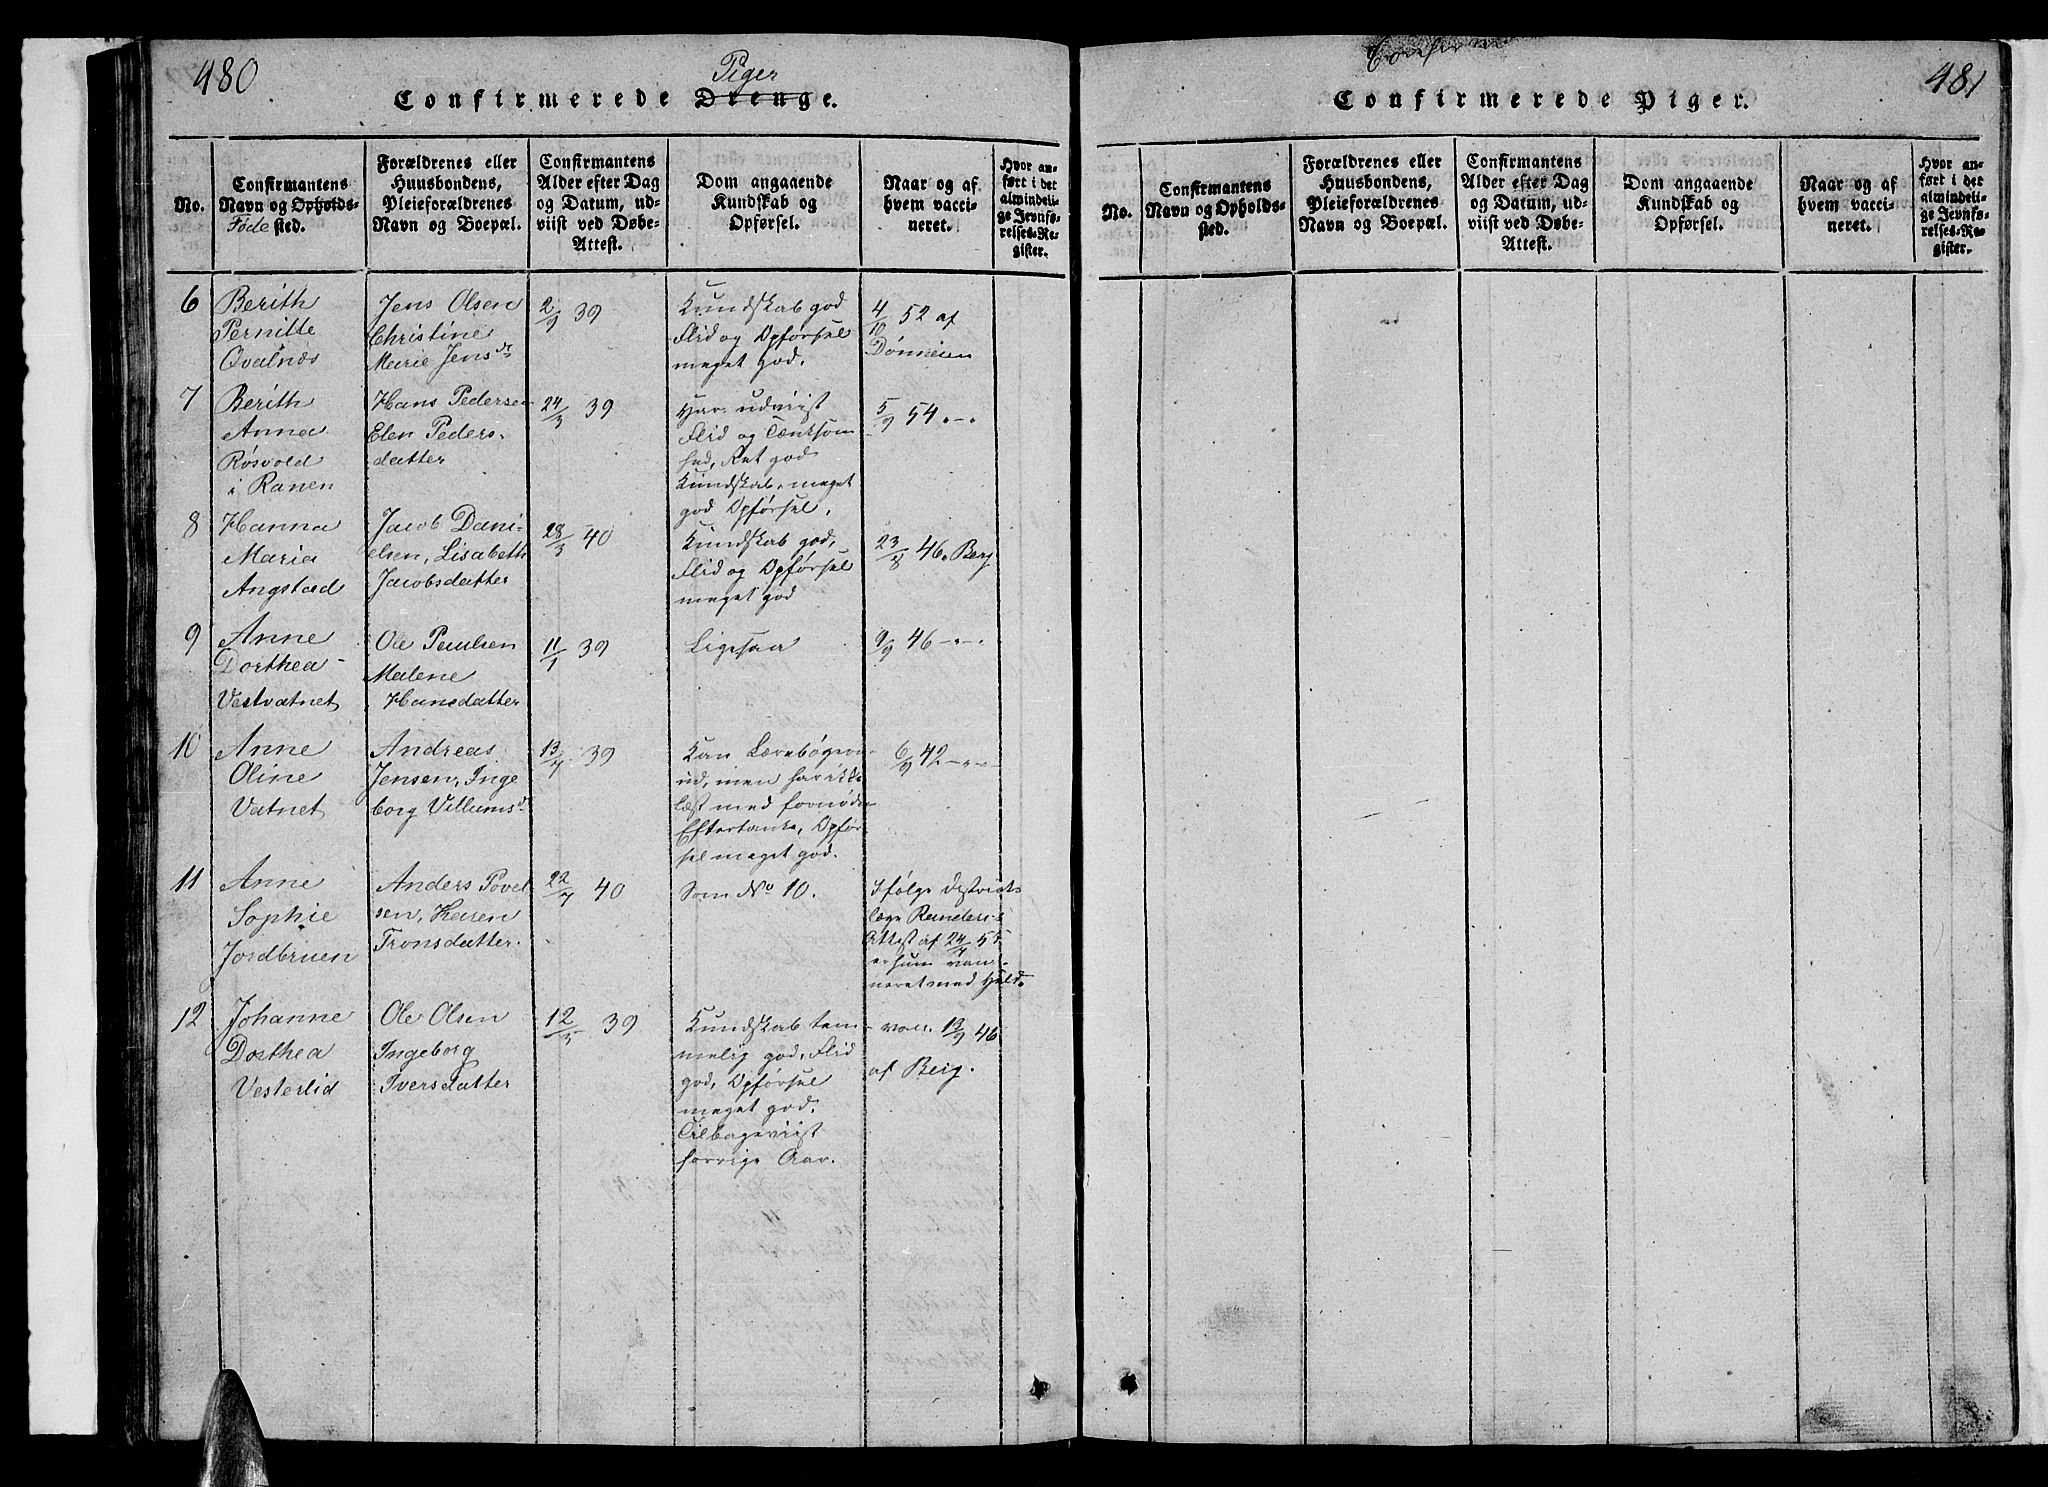 480
Piger
Confirmerede Drenge.
No.
Confirmantens
Navn og Opholds-
Føde sted.
Forældrenes eller
Huusbondens,
Pleieforældrenes
Navn og Boepæl.
Confirmantens
Alder efter Dag
og Datum, ud-
viist ved Døbe-
Attest.
Dom angaaende
Kundskab og
Opførsel.
Naar og af
hvem vacci-
neret.
Hvor an-
ført i det
almindeli-
ge Jevnfø-
relses-Re-
gister.
6
Berith
Pernille
Qvalnæs
Jens Olsen
Christine
Marie Jensdr
2/9 39
Kundskab god
Flid og Opførsel
meget god.
4/10 52 af
Dønneien
7
Berith
Anna
Røsvold
i Ranen
Hans Pedersen
Elen Peders-
datter
24/3 39
Har udviist
Flid og Tænksom
hed, Ret god
Kundskab, meget
god Opførsel.
5/9 54 -"-
8
Hanna
Maria
Angstad
Jacob Dani-
elsen, Lisabeth
Jacobsdatter
28/3 40
Kundskab god,
Flid og Opførsel
meget god
23/8 46. Berg
9
Anne
Dorthea
Vestvatnet
Ole Paulsen
Malene
Hansdatter
11/1 39
Ligesaa
9/9 46 -"-
10
Anne
Oline
Vatnet
Andreas
Jensen, Inge
borg Villumsd.
13/7 39
Kan Lærebøgerne
ud, men har ikke
læst med fornøden
Eftertanke, Opfør-
sel meget god.
6/9 42 -"-
11
Anne
Sophie
Jordbruen
Anders Povel
sen, Karen
Tronsdatter
22/7 40
Som No 10.
Ifølge Destrikts
læge Randers's
Attest af 24/4 55
er hun vacci-
neret med Held.
12
Johanne
Dorthea
Vesterlid
Ole Olsen
Ingeborg
Iversdatter
12/5 39
Kundskab tem
melig god, Flid
god, Opførsel
meget god.
Tilbageviist
forrige Aar.
vac. 13/9 46
af Berg.
481
Confirm
Confirmerede Piger.
No.
Confirmantens
Navn og Opholds-
sted.
Forældrenes eller
Huusbondens,
Pleieforældrenes
Navn og Boepæl.
Confirmantens
Alder efter Dag
og Datum, ud-
viist ved Døbe-
Attest.
Dom angaaende
Kundskab og
Opførsel.
Naar og af
hvem vacci-
neret.
Hvor an-
ført i det
almindeli-
ge Jevnfø-
relses-Re-
gister.